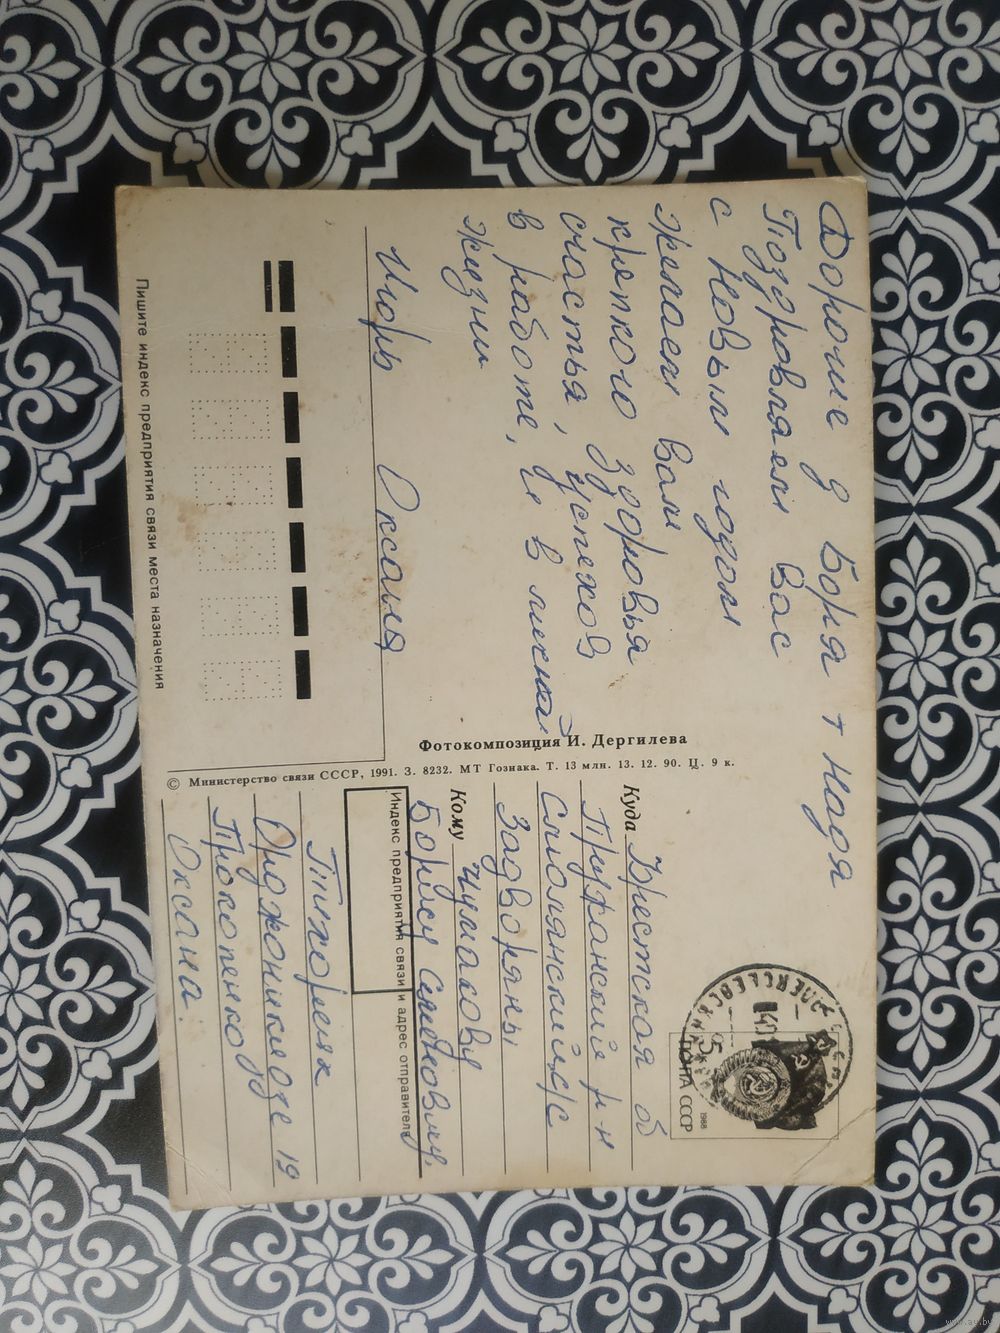 Дорогие д Боря + Надя
Поздровляем Вас
с Новым годом
Желаем вам
крепкого здоровья
счастья, успехов
в работе, и в личной
жизни
Июрь Оксаня
Пишите индекс предприятия связи места назначения
Фотокомпозиция И. Дергилева
© Министерство связи СССР, 1991. З. 8232. МТ Гознака. Т. 13 млн. 13. 12. 90. Ц. 9 к.
1988
ПОЧТА СССР
5
Куда Брестская об
Пружанский р-н
Смолянский с/с
Задворяны
Кому Чумакову
Борису Семеновичу.
Индекс предприятия связи и адрес отправителя
Тихорецк
Орджоникидзе 19
Прокопенко
Оксана.
www.ay.by